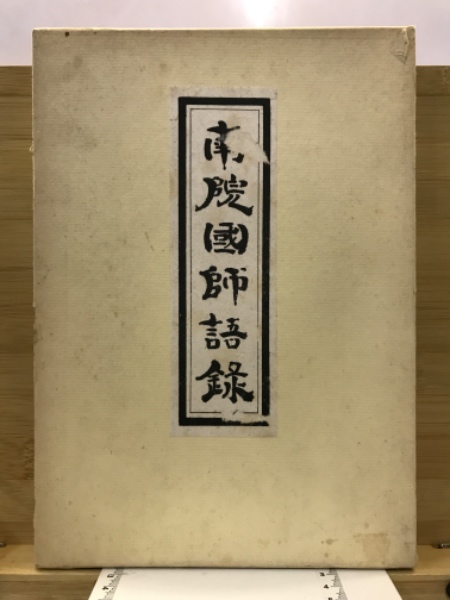 南院國師語錄